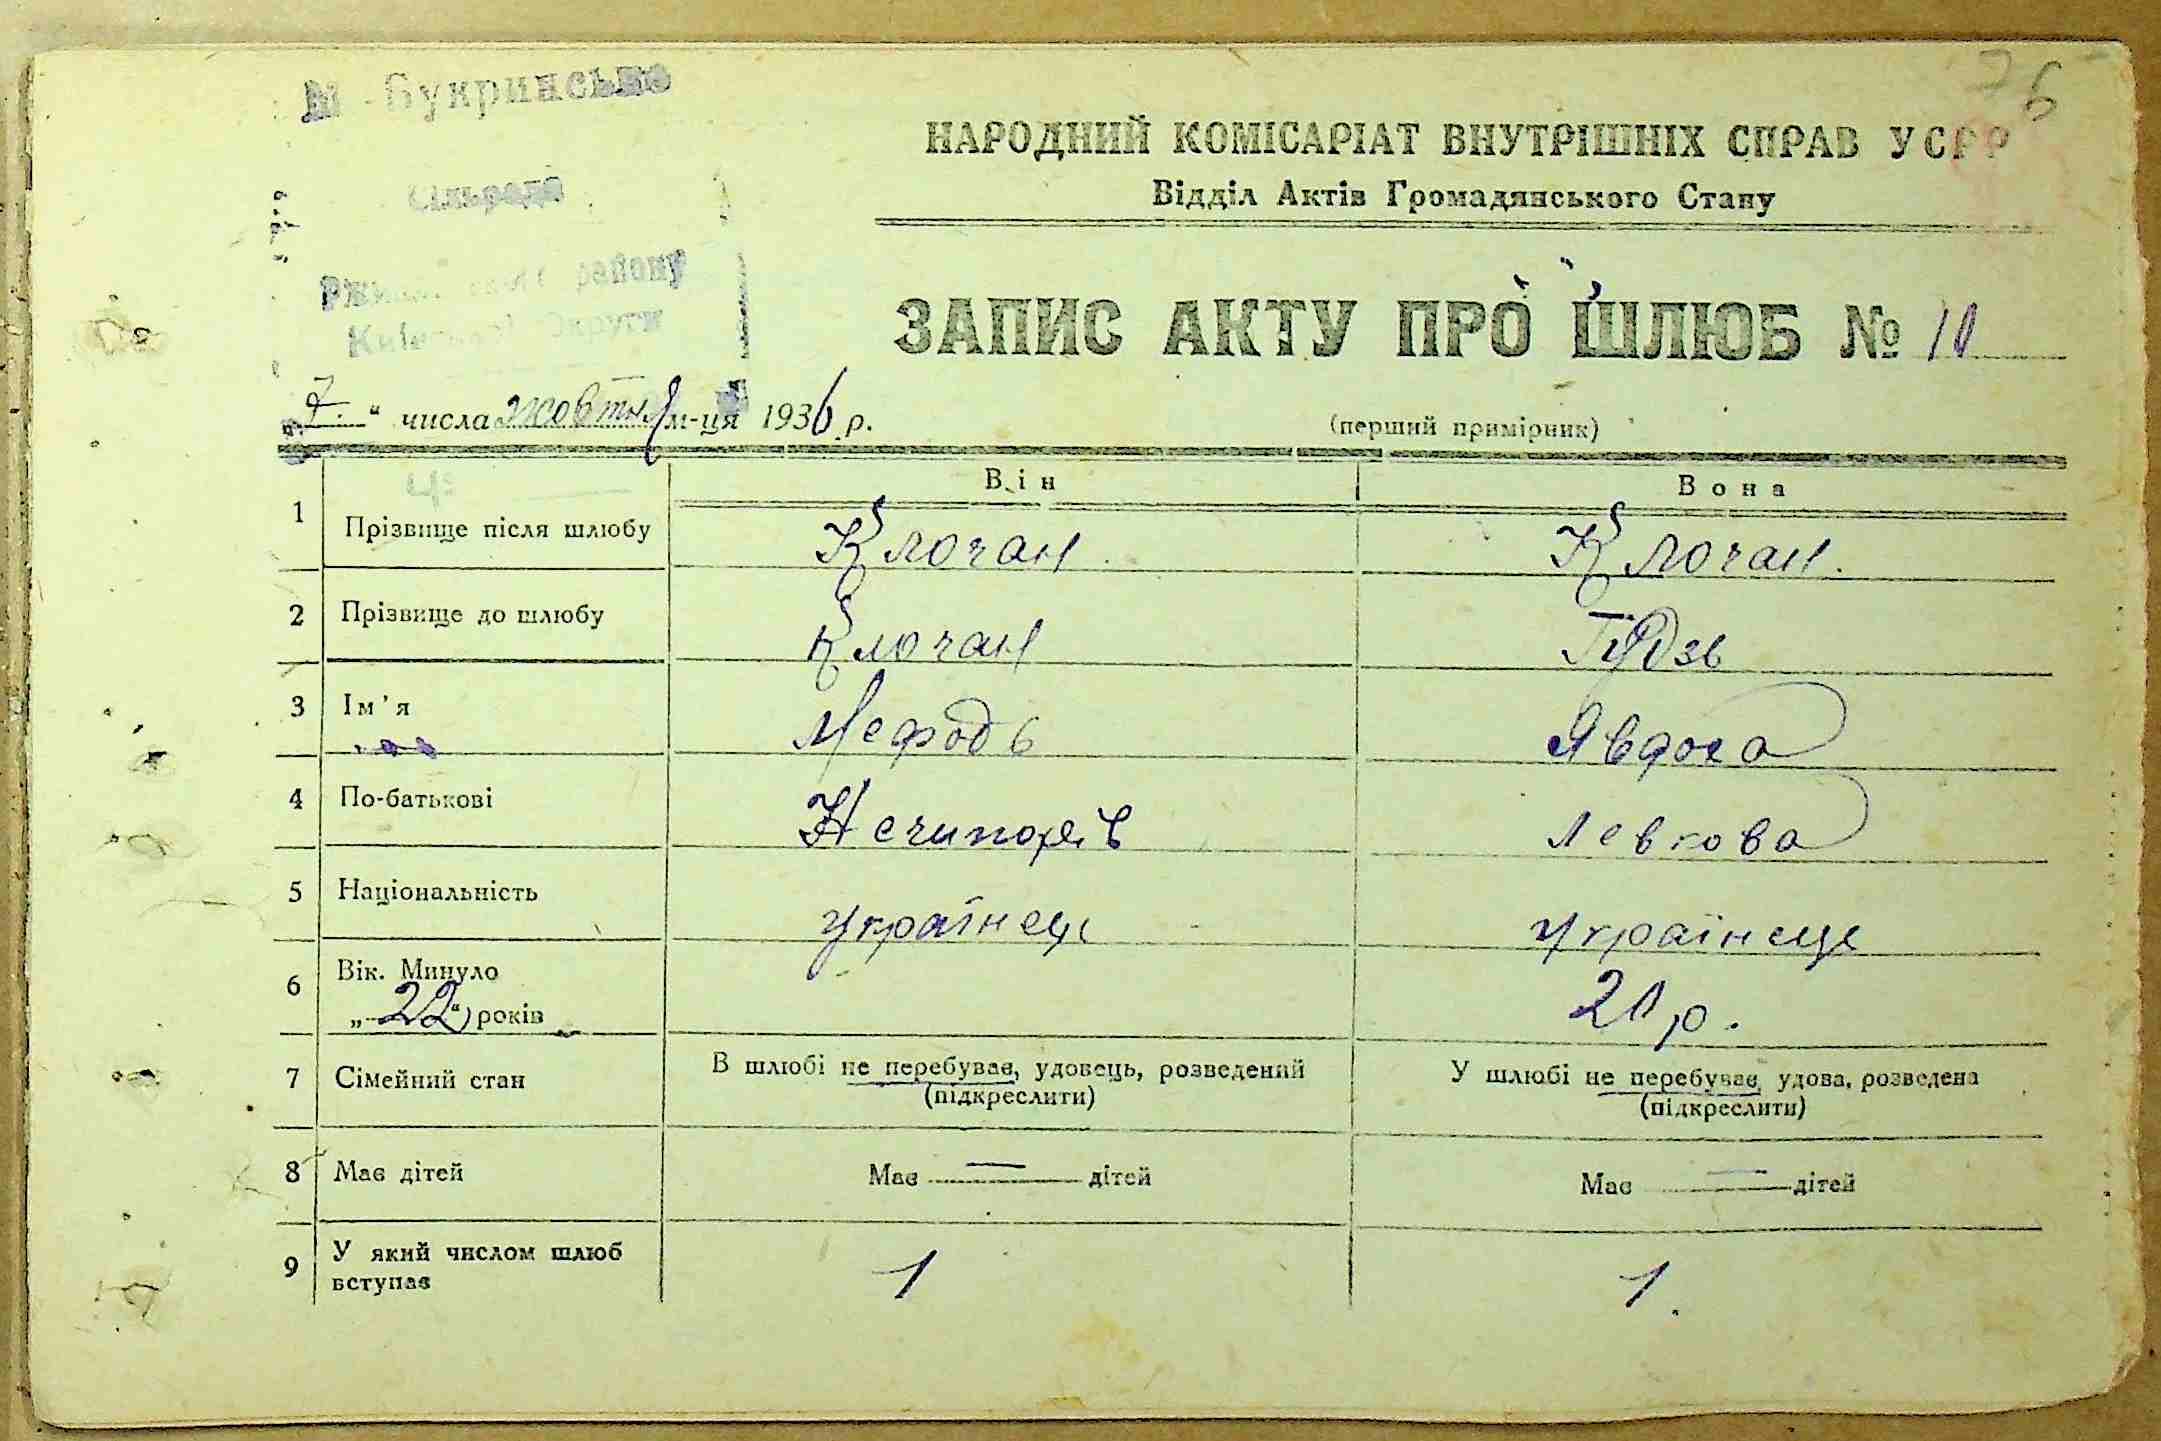 76
М-Букринсько
Сільрада
НАРОДНИЙ КОМІСАРІАТ ВНУТРІШНІХ СПРАВ УСРР
Відділ Актів Громадянського Стану
району
Округи
ЗАПИС АКТУ ПРО ШЛЮБ № 10
7 " числа жовтня м-ця 1936 р.
(перший примірник)
Він
Вона
1 Прізвище після шлюбу Клочан Клочан.
2 Прізвище до шлюбу Клочан Гудзь
3 Ім'я Мефодь Явдоха
4 По-батькові Нечипорів Левкова
5 Національність українець українець
6 Вік. Минуло
„ 22 " років 21 р.
7 Сімейний стан В шлюбі не перебував, удовець, розведений У шлюбі не перебуває, удова, розведена
(підкреслити) (підкреслити)
8 Має дітей Має — дітей Має — дітей
9 У який числом шлюб
вступає 1 1.